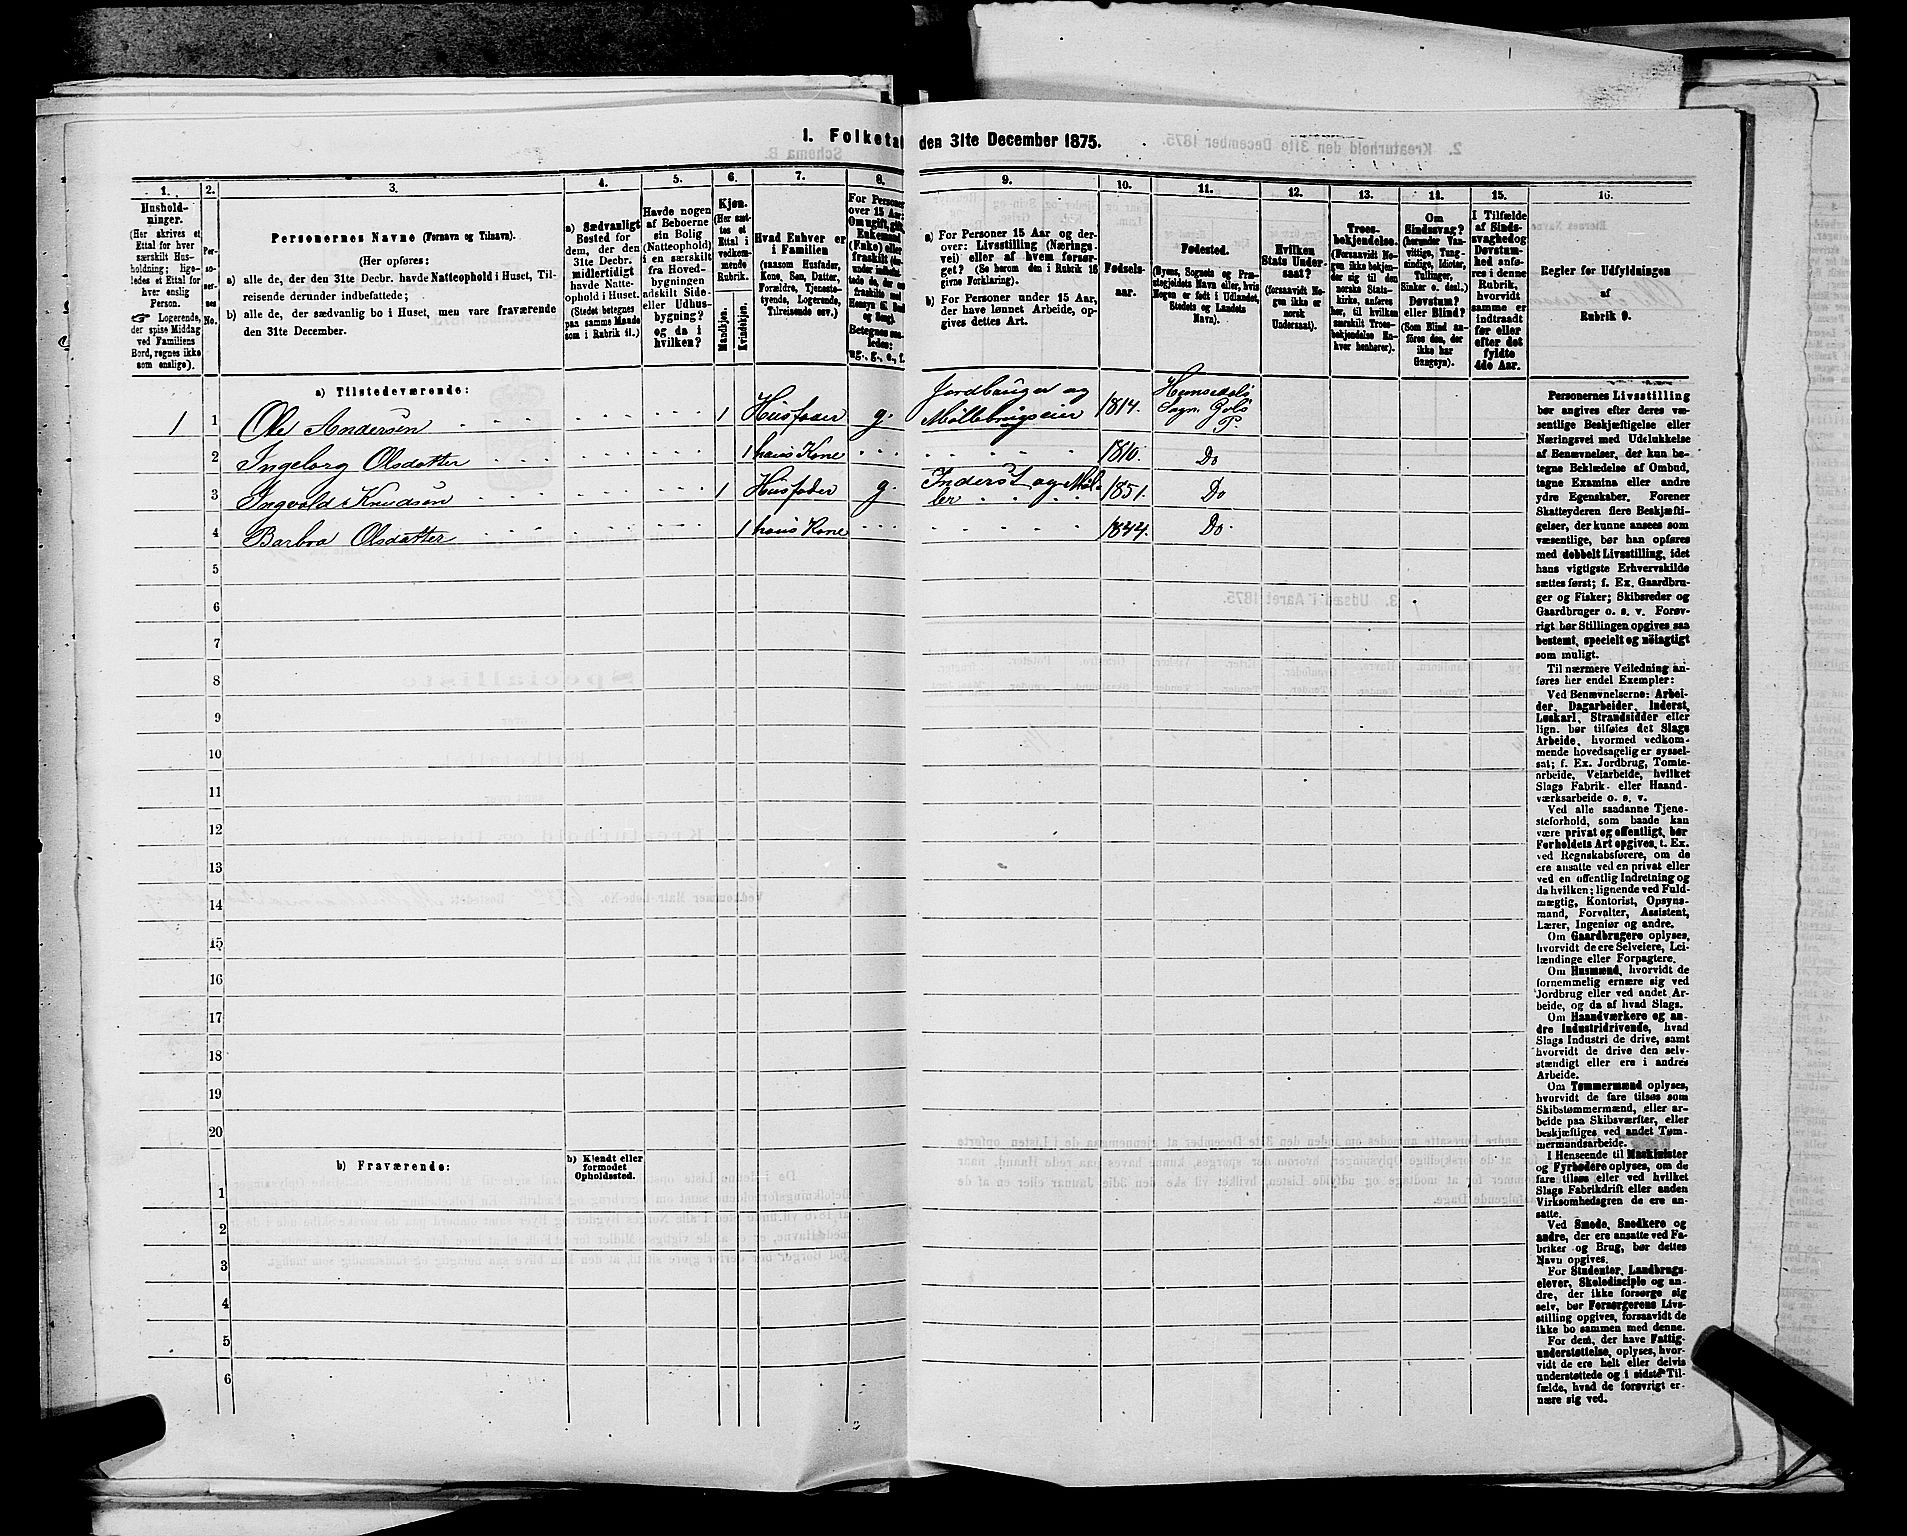 1. Folketal den 31te December 1875.
1. 2. 3. 4. 5. 6. 7. 8. 9. 10. 11. 12. 13. 14. 15. 16.
Hushold-
ninger.
(Her skrives et
Ettal for hver
særskilt Hus-
holdning; lige-
ledes et Ettal for
hver enslig
Person.
☞ Logerende,
der spise Middag
ved Familiens
Bord, regnes ikke
som enslige).
Per-
so-
ner-
nes
No.
Personernes Navne (Fornavn og Tilnavn).
(Her opføres:
a) alle de, der den 31te Decbr. havde Natteophold i Huset, Til-
reisende derunder indbefattede;
b) alle de, der sædvanlig bo i Huset, men vare fraværende
den 31te December.
a) Sædvanligt
Bosted for
dem, der den
31te Decbr.
midlertidigt
havde Natte-
ophold i Huset.
(Stedet betegnes
paa samme Maade
som i Rubrik 11.)
Havde nogen
af Beboerne
sin Bolig
(Natteophold)
i en særskilt
fra Hoved-
bygningen
adskilt Side-
eller Udhus-
bygning?
og da i
hvilken?
Kjøn.
(Her sæt-
tes et
Ettal i
vedkom-
mende
Rubrik.
Mandkjøn.
Kvindekjøn.
Hvad Enhver er
i Familien
(saasom Husfader,
Kone, Søn, Datter,
Forældre, Tjeneste-
tyende, Logerende,
Tilreisende osv.)
For Personer
over 15 Aar:
Om ugift, gift,
Enkemand
(Enke) eller
fraskilt
Betegnes saa-
ledes:
ug., g., e., f.
a) For Personer 15 Aar og der-
over: Livsstilling (Nærings-
vei) eller af hvem forsør-
get? (Se herom den i Rubrik 16
givne Forklaring).
b) For Personer under 15 Aar,
der have lønnet Arbeide, op-
gives dettes Art.
Fødsels-
aar.
Fødested.
(Byens, Sognets og Præ-
stegjeldets Navn eller, hvis
Nogen er født i Udlandet,
Stedets og Landets
Navn).
Hvilken
Stats Under-
saat?
(forsaavidt No-
gen ikke er
norsk
Undersaat).
Troes-
bekjendelse.
(Forsaavidt No-
gen ikke bekjen-
der sig til den
norske Stats-
kirke, anføres
her, til hvilken
særskilt Troes-
bekjendelse En-
hver henhører).
Om
Sindssvag?
(herunder Van-
vittige, Tung-
sindige, Idioter,
Tullinger,
Sinker o. desl.)
Døvstum?
eller Blind?
(Som Blind an-
føres den, der
ikke har
Gangsyn).
I Tilfælde
af Sinds-
svaghed og
Døvstum-
hed anfø-
res i denne
Rubrik,
hvorvidt
samme er
indtraadt
før eller
efter det
fyldte
4de Aar.
Regler for Udfyldningen
af
Rubrik 9.
a) Tilstedeværende:
1 1 Ole Andersen 1 Husfader g. Jordbruger og Møllebrugseier 1814. Hemsedals Sogn Gols P.
2 Ingeborg Olsdatter 1 hans Kone 1810. Do
3 Ingvald Knudsen 1 Husfader g. Inderst og Møller 1851. Do
4 Barbra Olsdatter 1 hans Kone 1844. Do
5
6
7
8
9
10
11
12
13
14
15
16
17
18
19
20
b) Fraværende: b) Kjendt eller
formodet
Opholdssted.
1
2
3
4
5
6
Personernes Livsstilling
bør angives efter deres væ-
sentlige Beskjæftigelse eller
Næringsvei med Udelukkelse
af Benævnelser, der kun be-
tegne Beklædelse af Ombud,
tagne Examina eller andre
ydre Egenskaber. Forener
Skatteyderen flere Beskjæfti-
gelser, der kunne ansees som
væsentlige, bør han opføres
med dobbelt Livsstilling, idet
hans vigtigste Erhvervskilde
sættes først; f. Ex. Gaardbru-
ger og Fisker; Skibsreder og
Gaardbruger o. s. v. Forøv-
rigt bør Stillingen opgives saa
bestemt, specielt og nöiagtigt
som muligt.
Til nærmere Veiledning an-
føres her endel Exempler:
Ved Benævnelserne: Arbei-
der, Dagarbeider, Inderst,
Løskarl, Strandsidder eller
lign. bør tilføies det Slags
Arbeide, hvormed vedkom-
mende hovedsagelig er syssel-
sat; f. Ex. Jordbrug, Tomte-
arbeide, Veiarbeide, hvilket
Slags Fabrik- eller Haand-
værksarbeide o. s. v.
Ved alle saadanne Tjene-
steforhold, som baade kan
være privat og offentligt, bør
Forholdets Art opgives, t. Ex.
ved Regnskabsførere, om de
ere ansatte ved en privat eller
ved en offentlig Indretning og
da hvilken; lignende ved Fuld-
mægtig, Kontorist, Opsyns-
mand, Forvalter, Assistent,
Lærer, Ingeniør og andre.
Om Gaardbrugere oplyses,
hvorvidt de ere Selveiere, Lei-
lændinge eller Forpagtere.
Om Husmænd, hvorvidt de
fornemmelig ernære sig ved
Jordbrug eller ved andet Ar-
beide, og da af hvad Slags.
Om Haandværkere og an-
dre Industridrivende, hvad
Slags Industri de drive, samt
hvorvidt de drive den selv-
stændigt eller ere i andres
Arbeide.
Om Tømmermænd oplyses,
hvorvidt de fare tilsøs som
Skibstømmermænd, eller ar-
beide paa Skibsværfter, eller
beskjæftiges ved andet Tøm-
mermandsarbeide.
I Henseende til Maskinister
og Fyrbødere oplyses, om de
fare tilsøs eller ved hvilket
Slags Fabrikdrift eller anden
Virksomhed de ere an-
satte.
Ved Smede, Snedkere og
andre, der ere ansatte ved Fa-
briker og Brug, bør dettes
Navn opgives.
For Studenter, Landbrugs-
elever, Skoledisciple og an-
dre, der ikke forsørge sig
selv, bør Forsørgerens Livs-
stilling opgives, forsaavidt de
ikke bo sammen med denne.
For dem, der have Fattig-
understøttelse, oplyses, hvor-
vidt de ere helt eller delvis
understøttede og i sidste Til-
fælde, hvad de forøvrigt er-
nære sig ved.